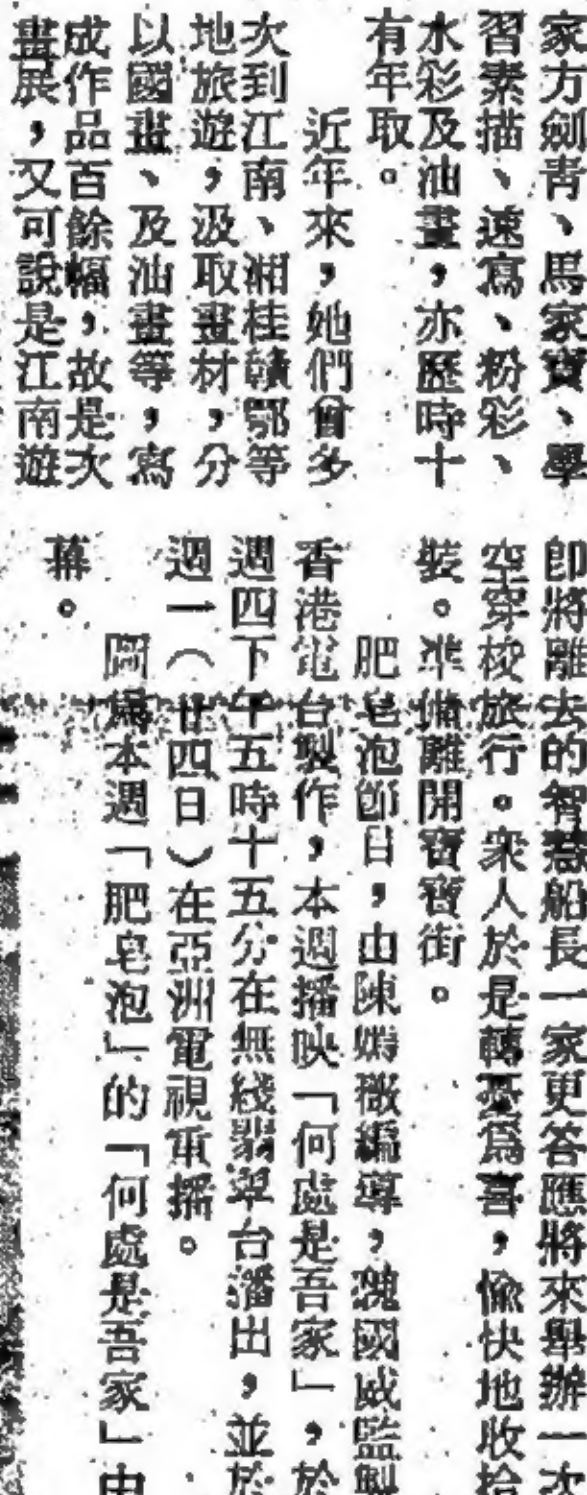 家方劍青、馬家寶、學
習素描、速寫、粉彩、
水彩及油畫，亦歷時十
有年取。
近年來，她們曾多
次到江南、湘桂贛鄂等
地旅遊，汲取畫材，分
以國畫、及油畫等，寫
成作品百餘幅，故是次
畫展，又可說是江南遊
即將離去的智慧船長一家更答應將來舉辦一次
空穿校旅行。衆人於是轉憂爲喜，愉快地收拾
裝。準備離開寶寶街。
肥皂泡節目，由陳嬌薇編導，魏國威監製
香港電台製作，本週播映「何處是吾家」，於
週四下午五時十五分在無綫翡翠台播出，並於
週一（廿四日）在亞洲電視重播。
圖爲本週「肥皂泡」的「何處是吾家」中
幕。